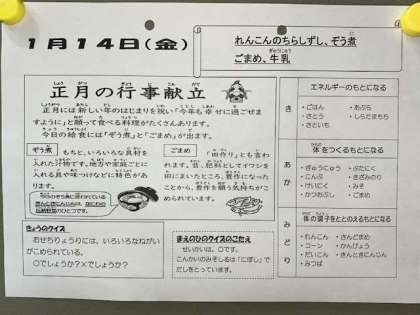 1月14日(金)
れんこんのちらしずし、ぞう煮
ごまめ、牛乳
正月の行事献立
正月には新しい年のはじまりを祝い「今年も幸せに過ごせま
すように」と願って食べる料理がたくさんあります。
今日の給食には「ぞう煮」と「ごまめ」が出ます。
ぞう煮
もちと、いろいろな具材を
入れた汁物です。地方や家庭ごとに
入れる具や味つけなどに特色があ
ります。
ごまめ
「田作り」とも言わ
れます。昔、肥料としてイワシを
田にまいたところ、豊作になった
ことから、豊作を願う気持ちがこ
められています。
きょうのクイズ
おせちりょうりには、いろいろなねがい
がこめられている。
○でしょうか?×でしょうか?
まえのひのクイズのこたえ
せいかいは、○です。
こんかいのみそしるは「にぼし」で
だしをとっています。
エネルギーのもとになる
き
・ごはん
・あぶら
・さとう
・しらたまもち
・さといも
体をつくるもとになる
あか
・ぎゅうにゅう
・ぶたにく
・にんぶ
・きざみのり
・けいにく
・みそ
・かつおぶし
・ごまめ
体の調子をととのえるもとになる
みどり
・れんこん
・さんどまめ
・コーン
・かんぴょう
・だいこん
・きんときにんじん
・みつば